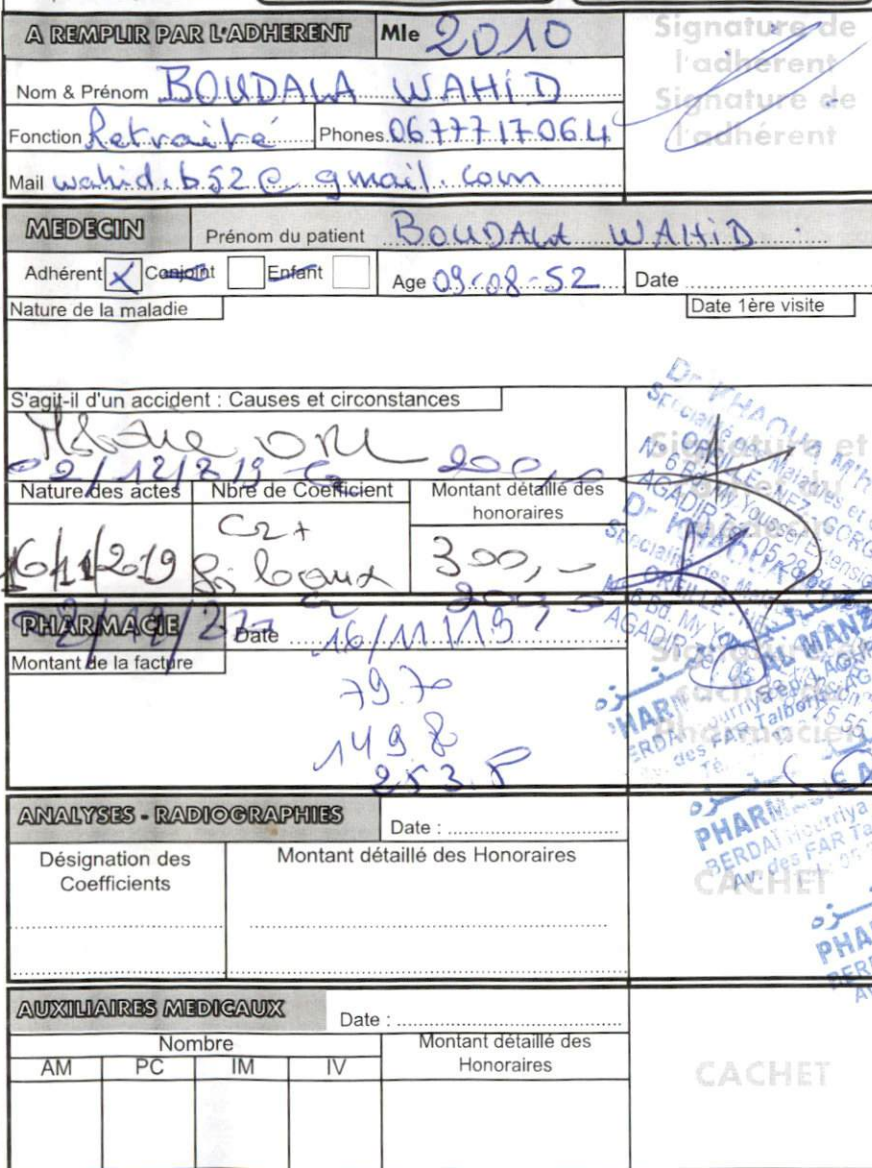 A REMPLIR PAR L'ADHERENT Mle 2010
Signature de l'adhérent
Signature de l'adhérent
Nom & Prénom BOUDALA WAHID
Fonction Retraité Phones 0677717064
Mail wahid.b52@gmail.com
MEDECIN Prénom du patient BOUDALA WAHID
Adhérent X Conjoint Enfant Age 09-08-52 Date
Nature de la maladie Date 1ère visite
S'agit-il d'un accident : Causes et circonstances
ORL
02/12/219 C2 200,00
Nature des actes Nbre de Coefficient Montant détaillé des honoraires
16/11/2019 C2+ 300,-
Dr KHAOUA
Spécialiste des Maladies et
OREILLE - NEZ - GORGE
N° 6 Bd. My Youssef Extension
AGADIR
PHARMACIE Date 16/11/19
Montant de la facture
79.70
149 8
253.8
PHARMACIE AL MANZ
BERDAI Hourriya
Av. des FAR Talborjt
Pharmacien
ANALYSES - RADIOGRAPHIES Date :
Désignation des Coefficients Montant détaillé des Honoraires
CACHET
PHARMACIE A
BERDAI Hourriya
Av. des FAR Ta
AUXILIAIRES MEDICAUX Date :
Nombre Montant détaillé des Honoraires
AM PC IM IV
CACHET